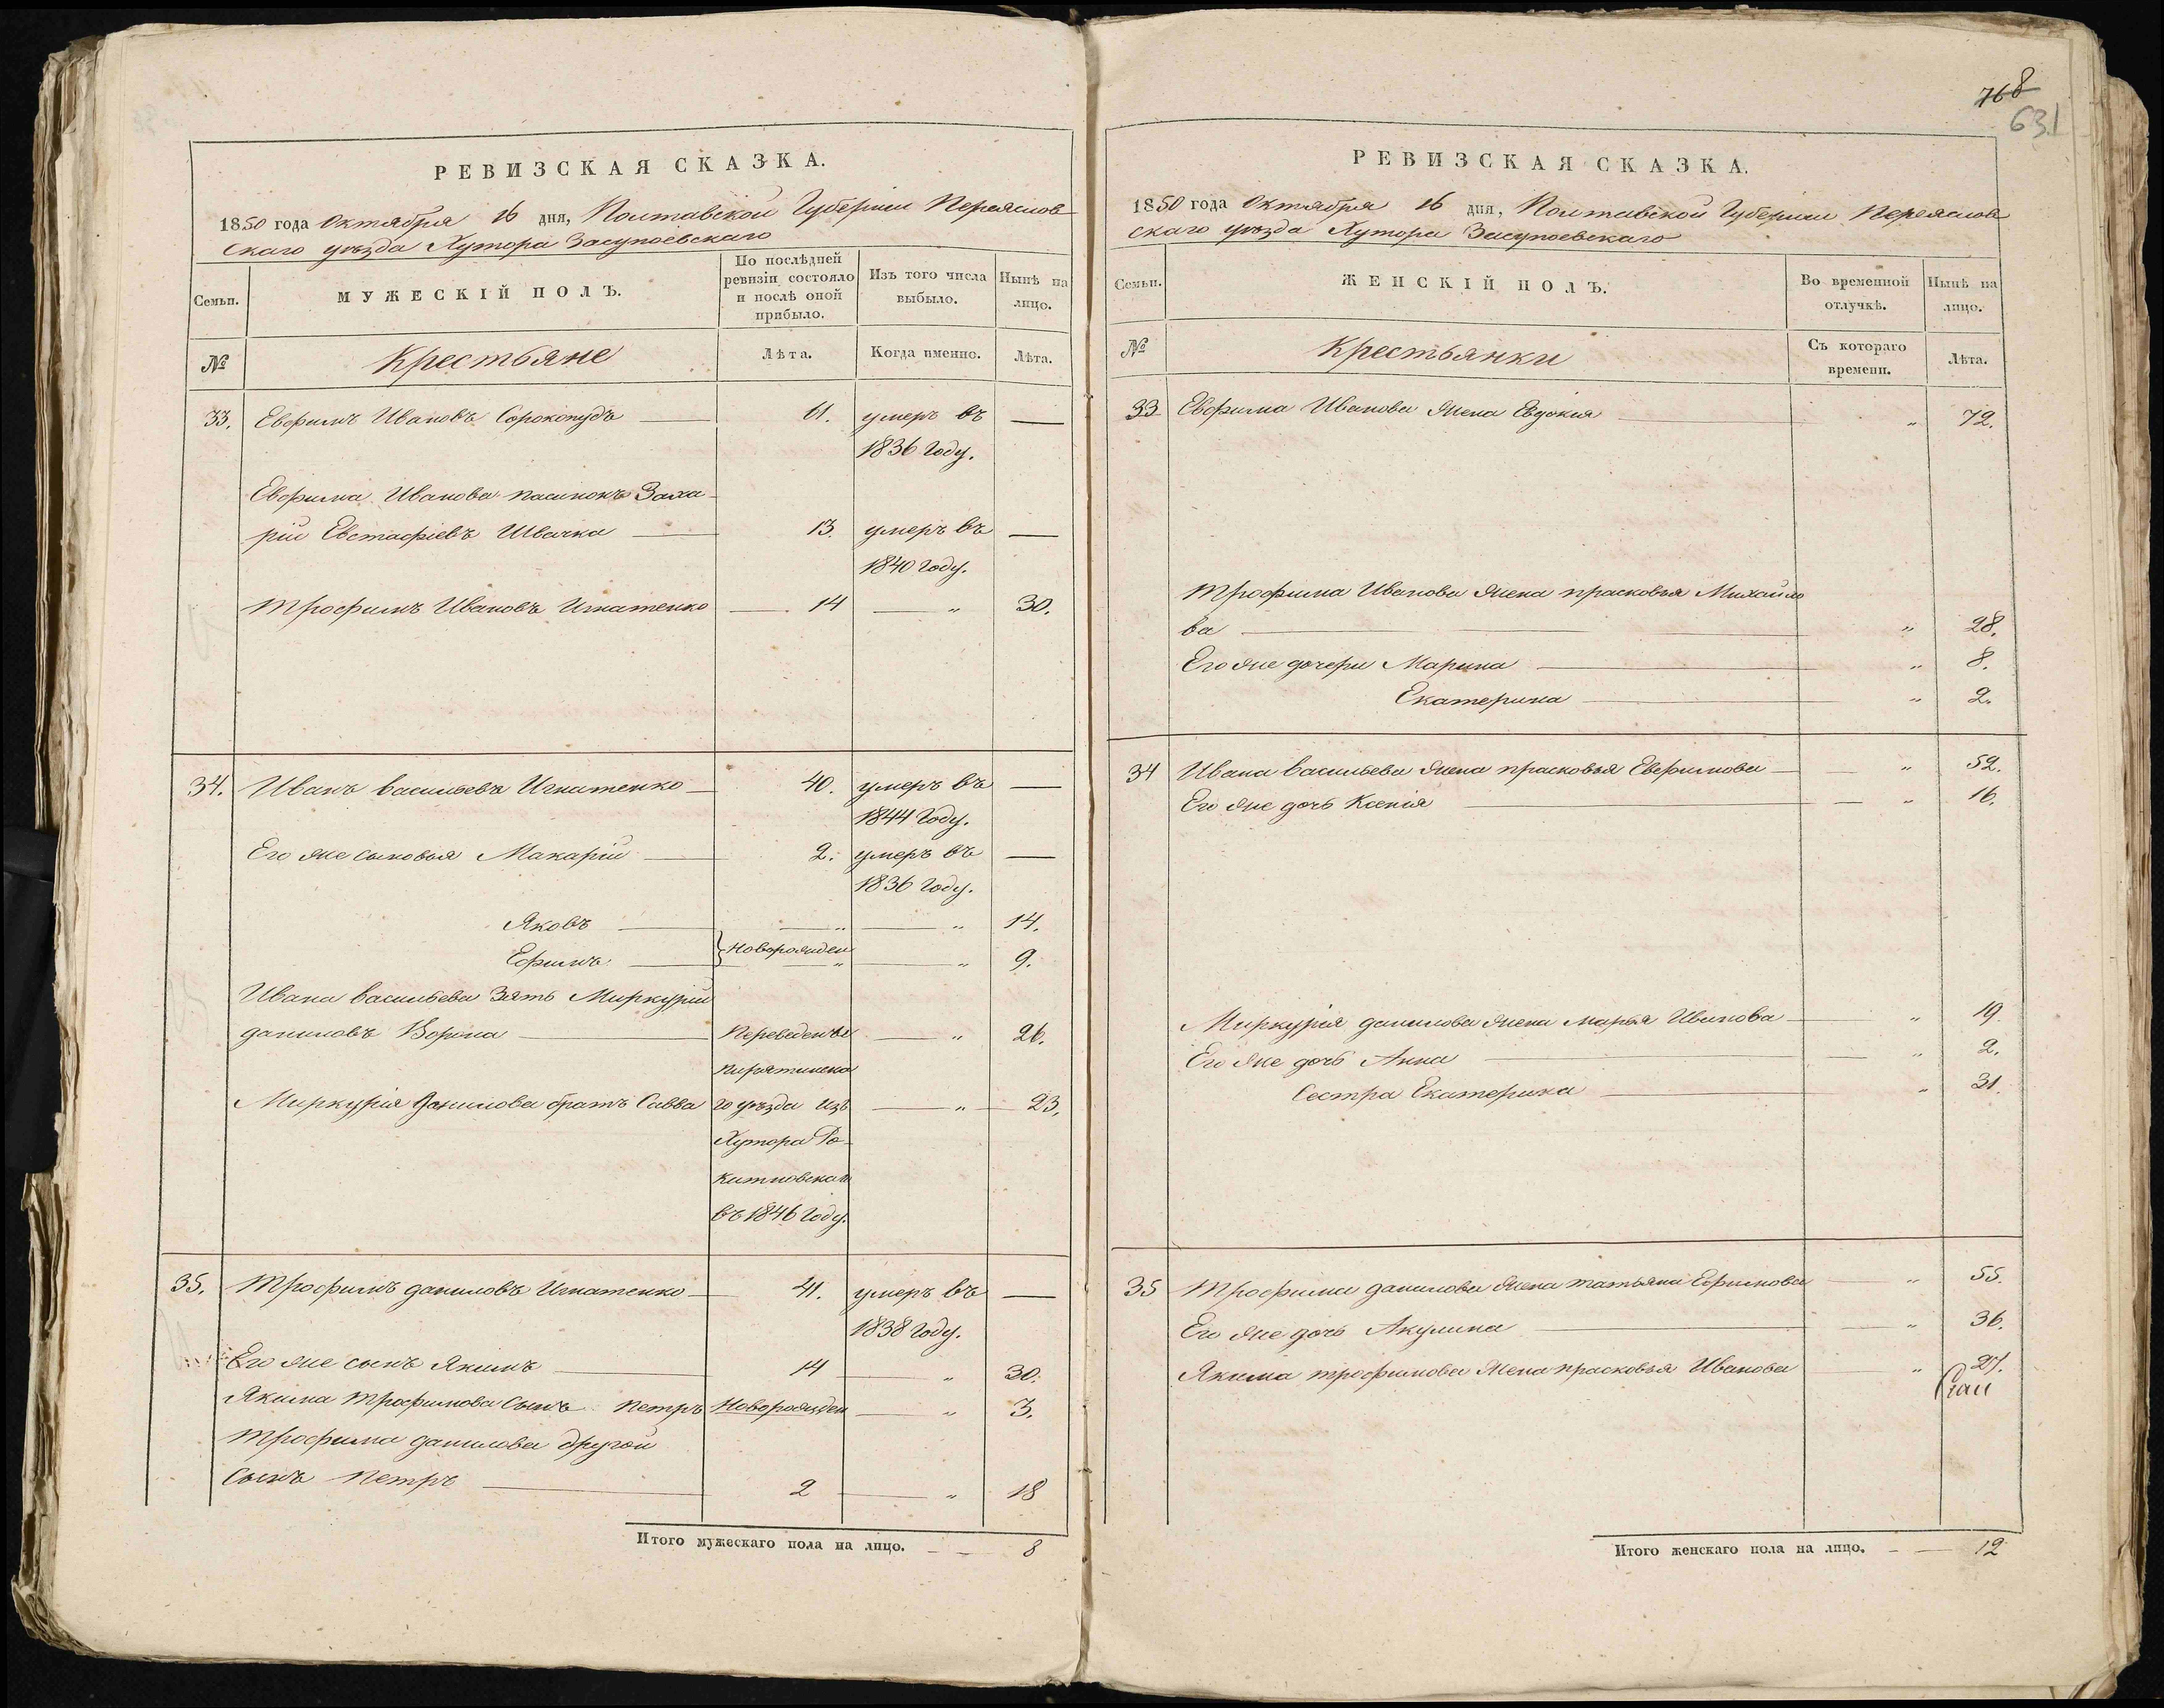 768
631
РЕВИЗСКАЯ СКАЗКА.
1850 года Октября 16 дня, Полтавской Губернии Переяслов
скаго уѣзда Хутора Засупоевскаго
Семьи.
МУЖЕСКІЙ ПОЛЪ.
По послѣдней ревизіи состояло и послѣ оной прибыло.
Изъ того числа выбыло.
Нынѣ на лицо.
№
Крестьяне
Лѣта.
Когда именно.
Лѣта.
33. Евфимъ Ивановъ Сорокопудъ — 61. умеръ въ —
1836 году.
Евфима Иванова пасинокъ Заха
рій Евстафіевъ Швачка — 13. умеръ въ —
1840 году.
Трофимъ Ивановъ Игнатенко — 14 — „ 30.
34. Иванъ Васильевъ Игнатенко — 40. умеръ въ —
1844 году.
Его же сыновья Макарій — 2. умеръ въ —
1836 году.
Яковъ — „ — „ 14.
Ефимъ — Новорожден „ — „ 9.
Ивана Васильева Зять Миркурій
Даниловъ Ворона — Переведены — „ 26.
Пирятинска
Миркурія Данилова братъ Савва го уѣзда изъ — „ — 23.
Хутора Ро
китновскаго
въ 1846 году.
35. Трофимъ Даниловъ Игнатенко — 41. умеръ въ —
1838 году.
Его же сынъ Якимъ — 14 — „ 30.
Якима Трофимова Сынъ Петръ Новорожден — „ 3.
Трофима Данилова другой
Сынъ Петръ — 2 — „ 18
Итого мужескаго пола на лицо. — — 8
РЕВИЗСКАЯ СКАЗКА.
1850 года Октября 16 дня, Полтавской Губернии Переяслов
скаго уѣзда Хутора Засупоевскаго
Семьи.
ЖЕНСКІЙ ПОЛЪ.
Во временной отлучкѣ.
Нынѣ на лицо.
№
Крестьянки
Съ котораго времени.
Лѣта.
33 Евфима Иванова жена Евдокия — „ 72.
Трофима Иванова жена Прасковья Михайло
ва — „ 28.
Его же дочери Марина — „ 8.
Екатерина — „ 2.
34 Ивана Васильева жена Прасковья Евфимова — „ 52.
Его же дочь Ксенія — „ 16.
Миркурія Данилова жена Марья Иванова — „ 19.
Его же дочь Анна — „ 2.
Сестра Екатерина — „ 31.
35 Трофима Данилова жена Татьяна Ефимова — „ 55.
Его же дочь Акулина — „ 36.
Якима Трофимова Жена Прасковья Иванова — „ 27.
Итого женскаго пола на лицо. — — 12